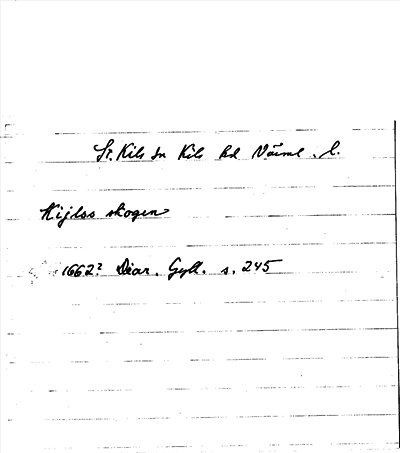 St. Kils sn Kils hd Värml. l.
Kijlss skogen
1662? Diar. Gyll. s. 245